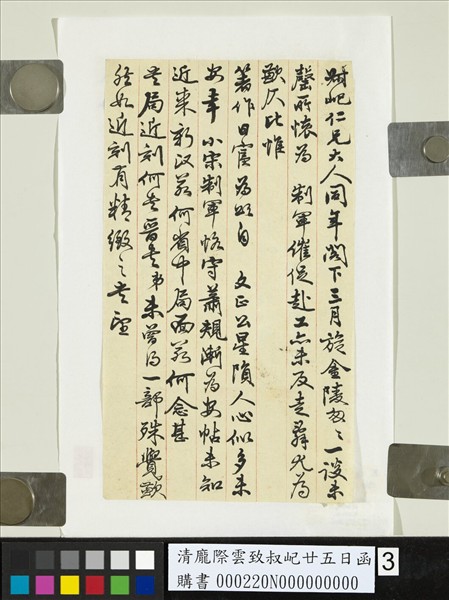 叔屺仁兄大人同年閣下三月旋金陵匆匆一談未
罄所懷為 制軍催促赴工亦未及走辭尤為
歉仄比惟
箸作日富為頌自 文正公星隕人心似多未
安幸 小宋制軍恪守蕭規漸為安帖未知
近來新政若何省中局面若何念甚
書局近刻何書晉書弟未曾得一部殊覺歉
然如近刻有精緻之書望
清龐際雲致叔屺廿五日函
購書 000220N000000000
3